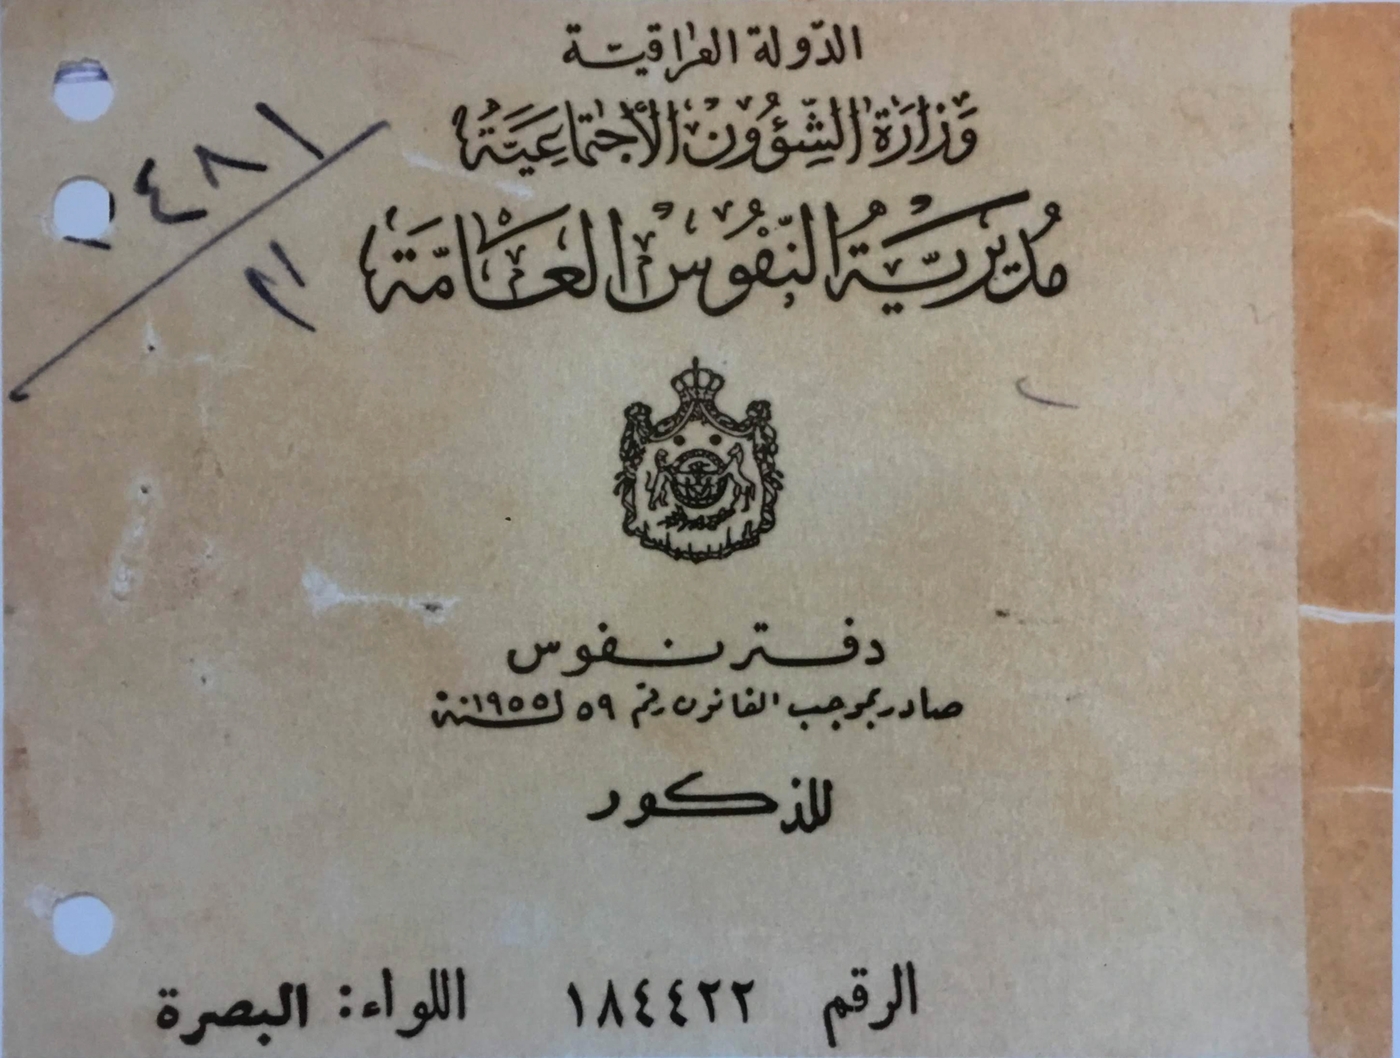 الدولة العراقية
وَزارَة الشِّؤُونْ الأجتماعِيَّة
مُديريّة النّفُوس العَامّة
دفتر نفوس
صادر بموجب القانون رقم ٥٩ لسنة ١٩٥٥
للذكور
الرقم ١٨٤٤٢٢ اللواء: البصرة